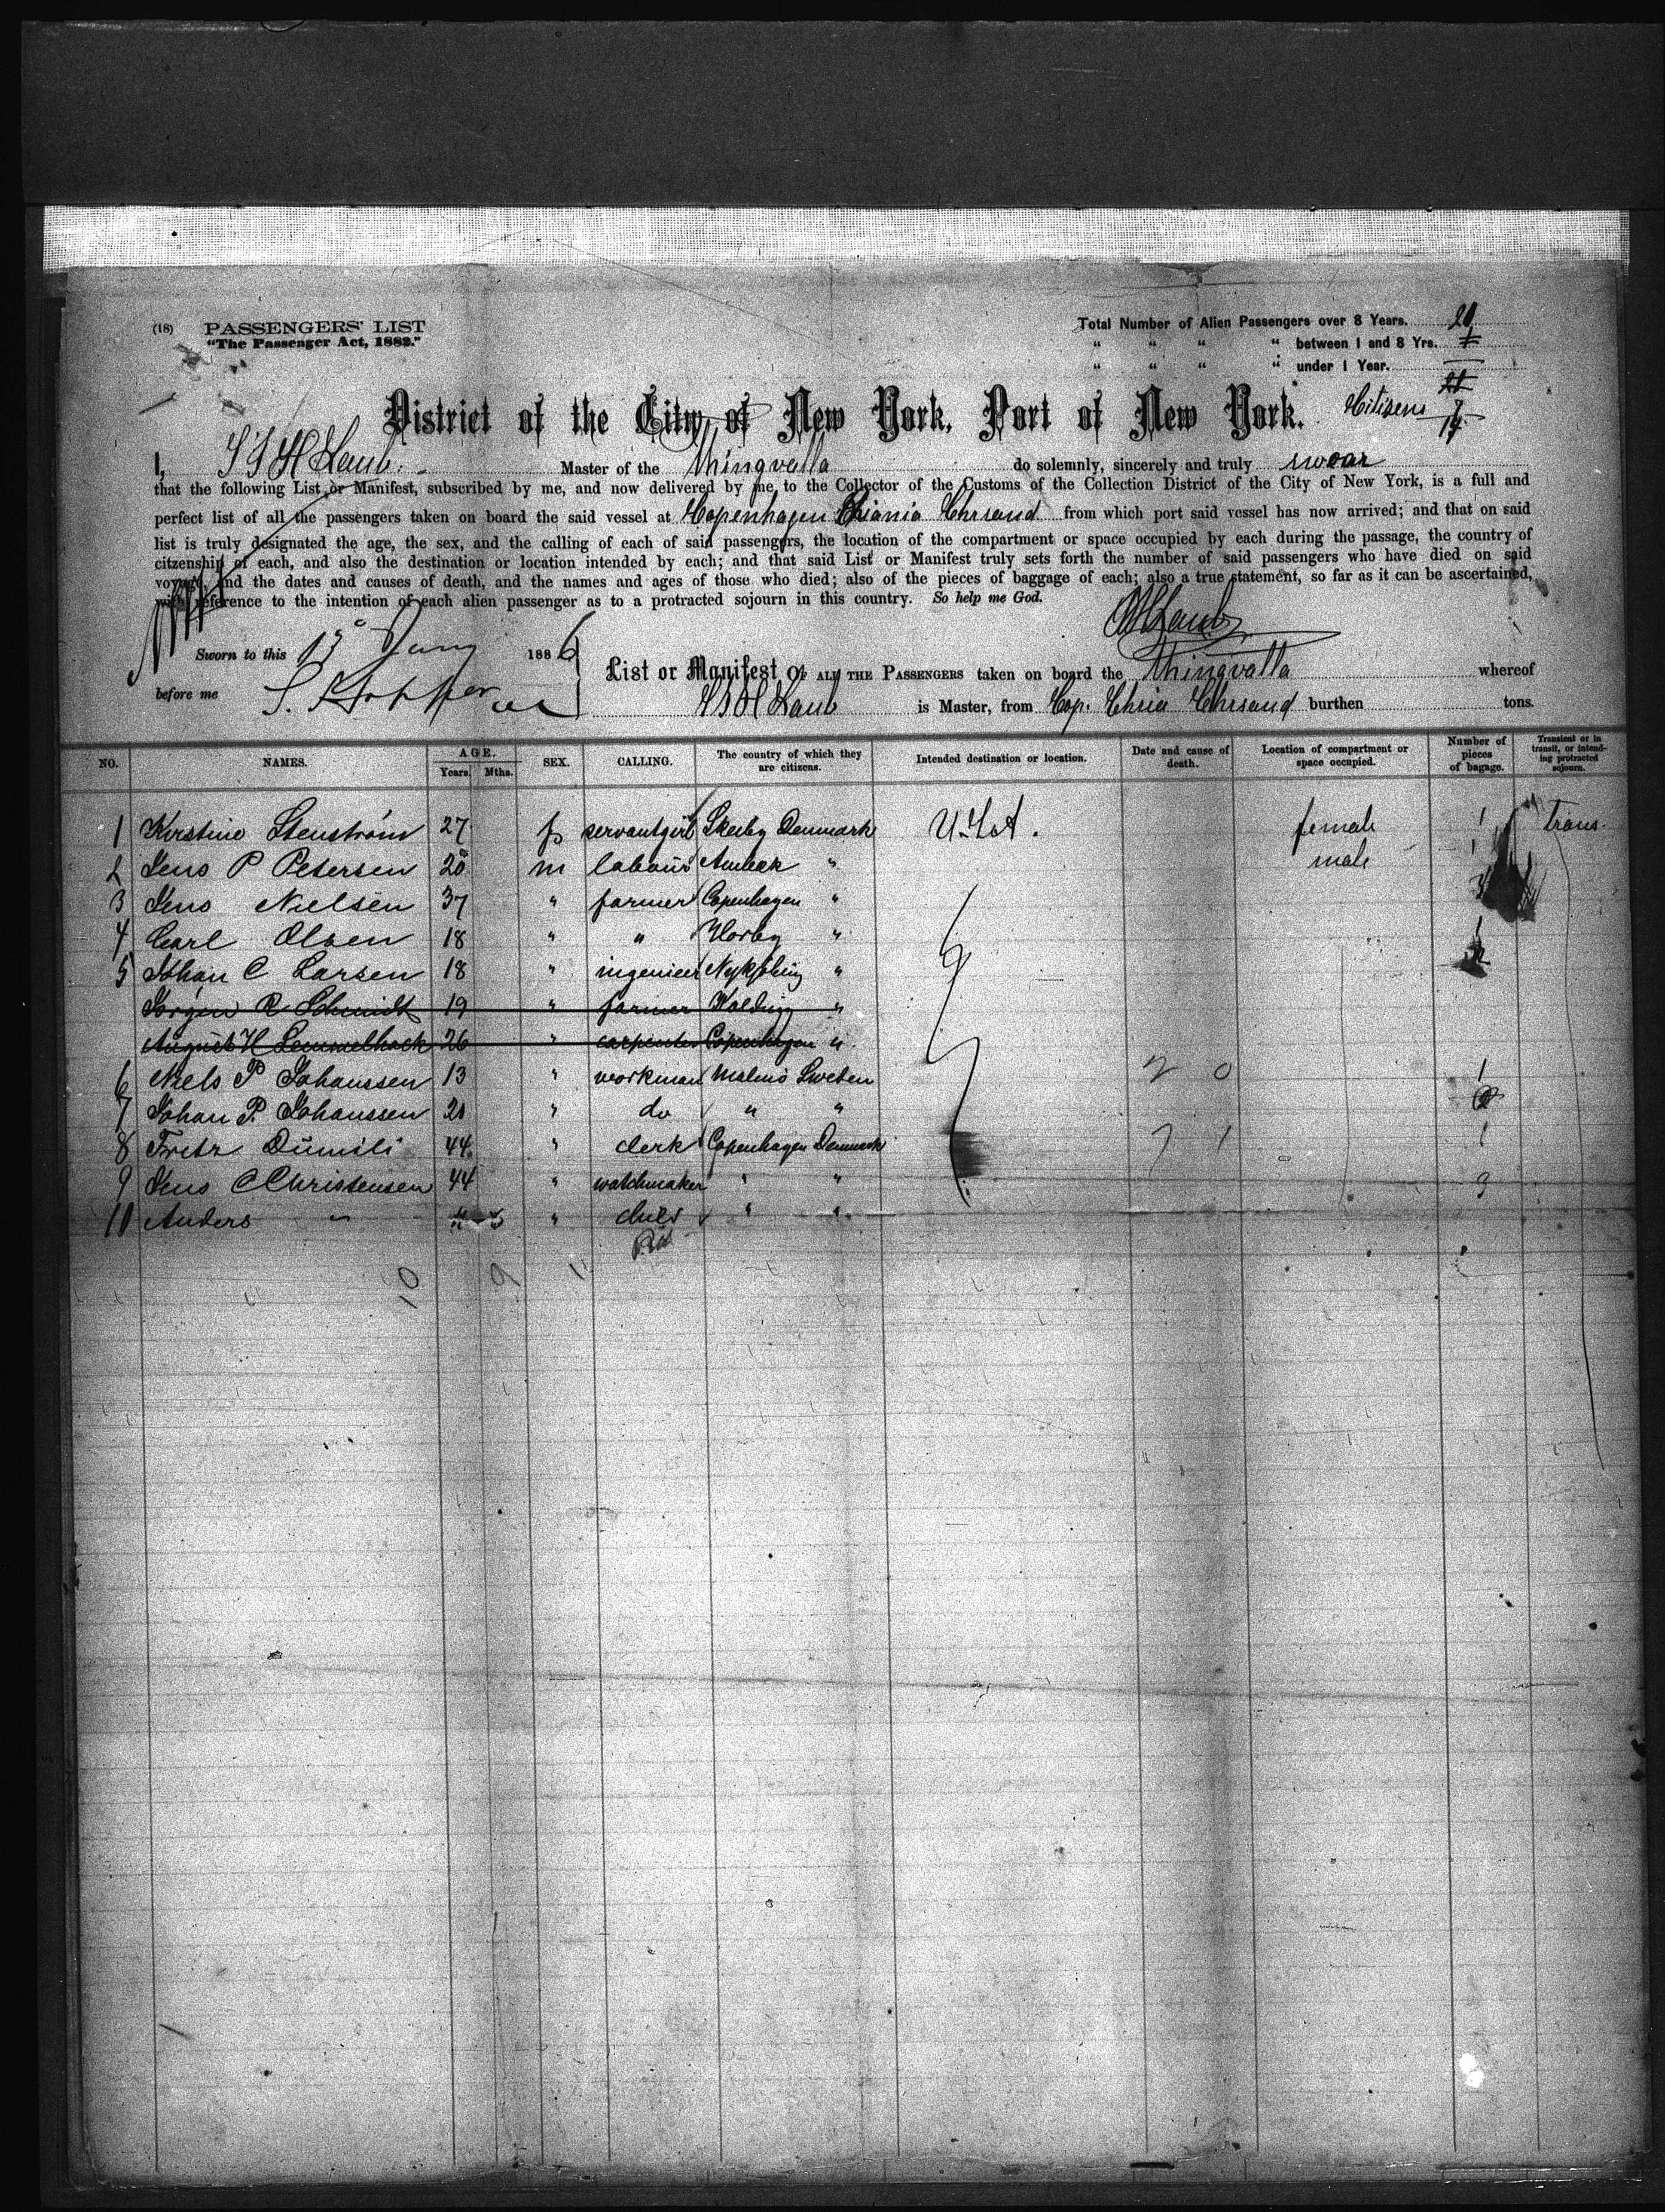 (18) PASSENGERS' LIST
"The Passenger Act, 1882."
Total Number of Alien Passengers over 8 Years.
" " " " between 1 and 8 Yrs.
" " " " under 1 Year.
Citizens 7
14
District of the City of New York, Port of New York.
I, Laub. Master of the Thingvalla do solemnly, sincerely and truly swear
that the following List or Manifest, subscribed by me, and now delivered by me to the Collector of the Customs of the Collection District of the City of New York, is a full and
perfect list of all the passengers taken on board the said vessel at Copenhagen Chiania Chrsand from which port said vessel has now arrived; and that on said
list is truly designated the age, the sex, and the calling of each of said passengers, the location of the compartment or space occupied by each during the passage, the country of
citzenship of each, and also the destination or location intended by each; and that said List or Manifest truly sets forth the number of said passengers who have died on said
voyage, and the dates and causes of death, and the names and ages of those who died; also of the pieces of baggage of each; also a true statement, so far as it can be ascertained,
with reference to the intention of each alien passenger as to a protracted sojourn in this country. So help me God.
Laub
Sworn to this 13 1886
before me
List or Manifest OF ALL THE PASSENGERS taken on board the Thingvalla whereof
Laub is Master, from Cop. Chria Chrsand burthen tons.
NO. NAMES. AGE. Years. Mths. SEX. CALLING. The country of which they are citizens. Intended destination or location. Date and cause of death. Location of compartment or space occupied. Number of pieces of bagage. Transient or in transit, or intending protracted sojourn.
1 Kirstine Stenström 27 f servantgirl Denmark female 1 trans.
2 Jens P Petersen 20 m labour " male 1
3 Jens Nielsen 37 " farmer Copenhagen " 3
4 Carl Olsen 18 " " Horby " 1
5 Johan C Larsen 18 " ingenieer Nykjöbing "
Jörgen R Schmidt 19 " farmer Kolding "
August H Lemmelhack 26 " carpenter Copenhagen "
6 Niels P Johanssen 13 " workman Malmö Sweden 1
7 Johan P. Johanssen 21 " do " "
8 Fritz 44 " clerk Copenhagen Denmark 1
9 Jens C Christensen 44 " watchmaker " " 3
10 Anders " " " "